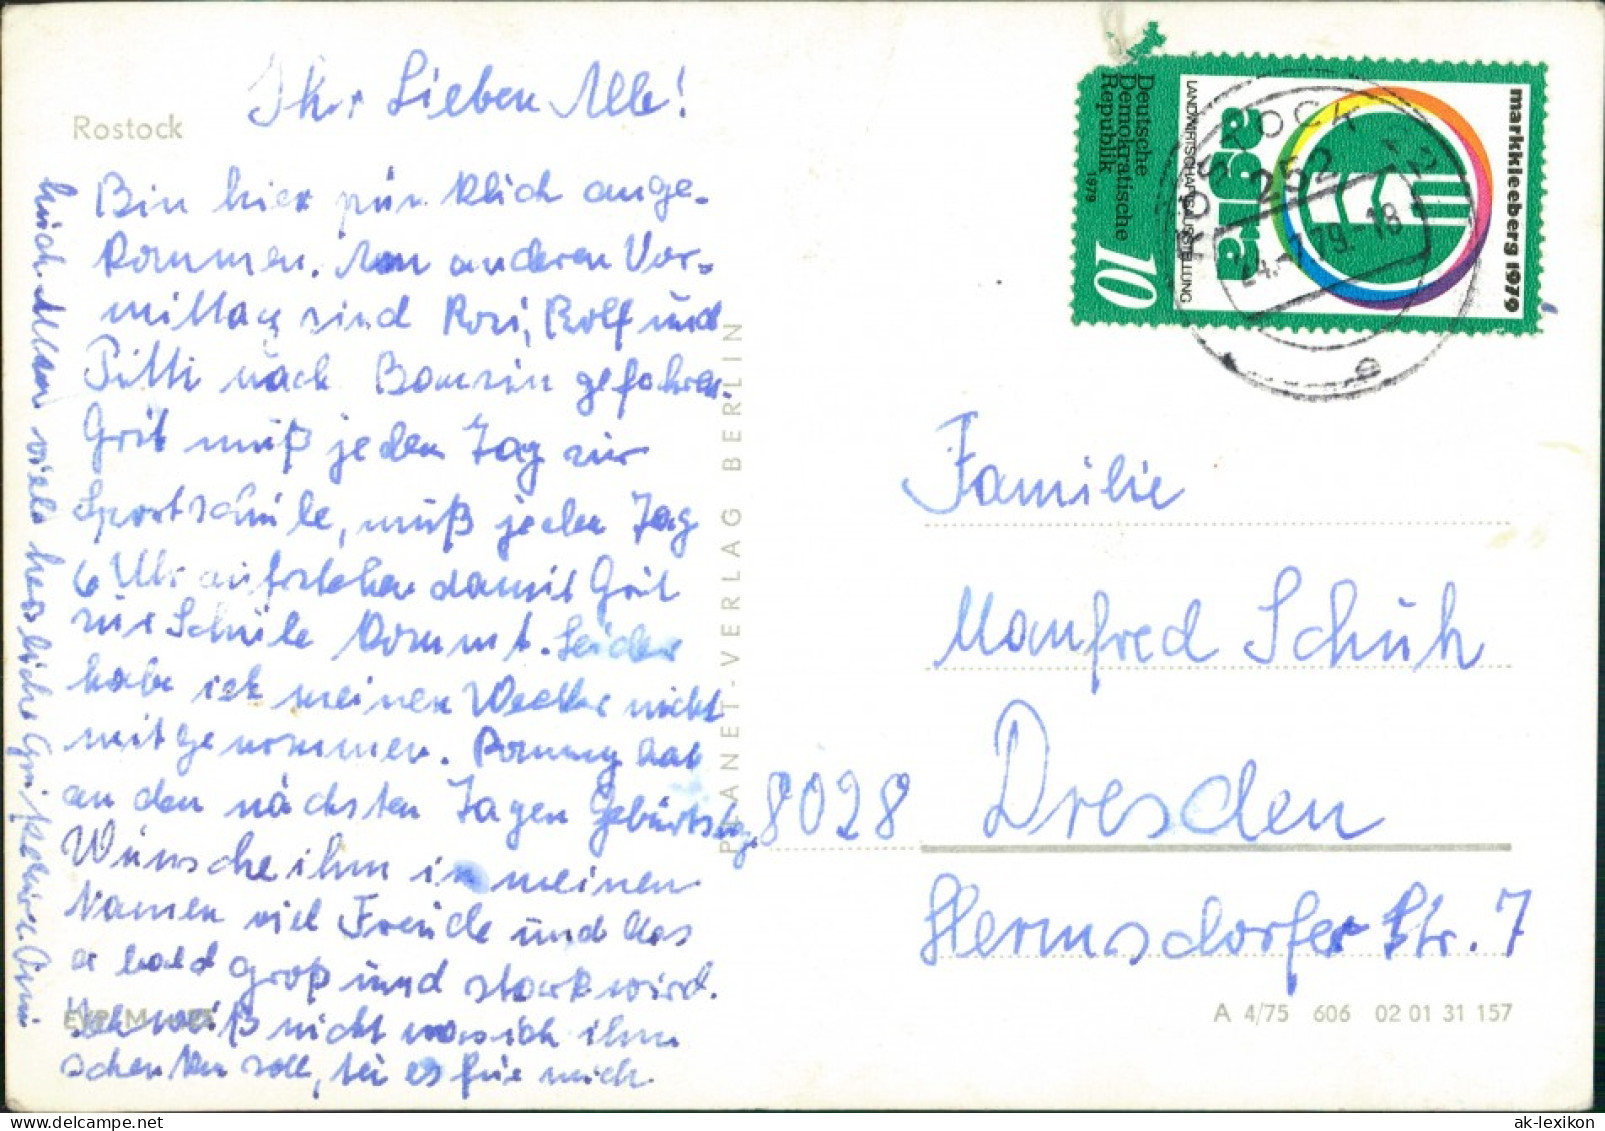 Rostock
Ihr Lieben Alle!
Bin hier pünklich ange-
kommen. Am anderen Vor-
mittag sind Rosi, Rolf und
Pitti nach Bansin gefahren.
Grit muß jeden Tag zur
Sportschule, muß jeden Tag
6 Uhr aufstehen damit Grit
zur Schule kommt. Leider
habe ich meinen Wecker nicht
mitgenommen. Ronny hat
an den nächsten Tagen Geburtstag.
Wünsche ihm in meinen
Namen viel Freude und das
er bald groß und stark wird.
Ich weiß nicht was ich ihm
schenken soll, tu es für mich.
viele herzliche Grüße
PLANET-VERLAG BERLIN
EVP M
Deutsche
Demokratische
Republik
1979
10
LANDWIRTSCHAFTSAUSSTELLUNG
agra
markkleeberg 1979
ROSTOCK
252
24.-7.79.-18
e
Familie
Manfred Schuh
8028 Dresden
Hermsdorfer Str. 7
A 4/75 606 02 01 31 157
ak-lexikon